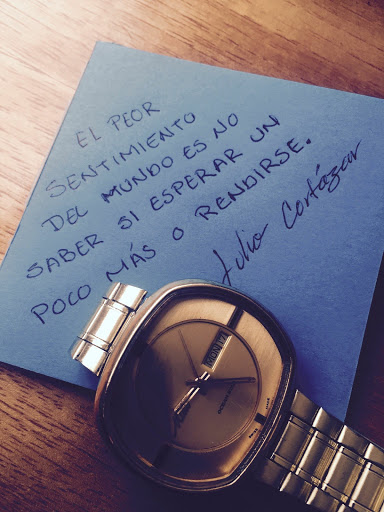 EL PEOR
SENTIMIENTO
DEL MUNDO ES NO
SABER SI ESPERAR UN
POCO MÁS O RENDIRSE.
Julio Cortázar